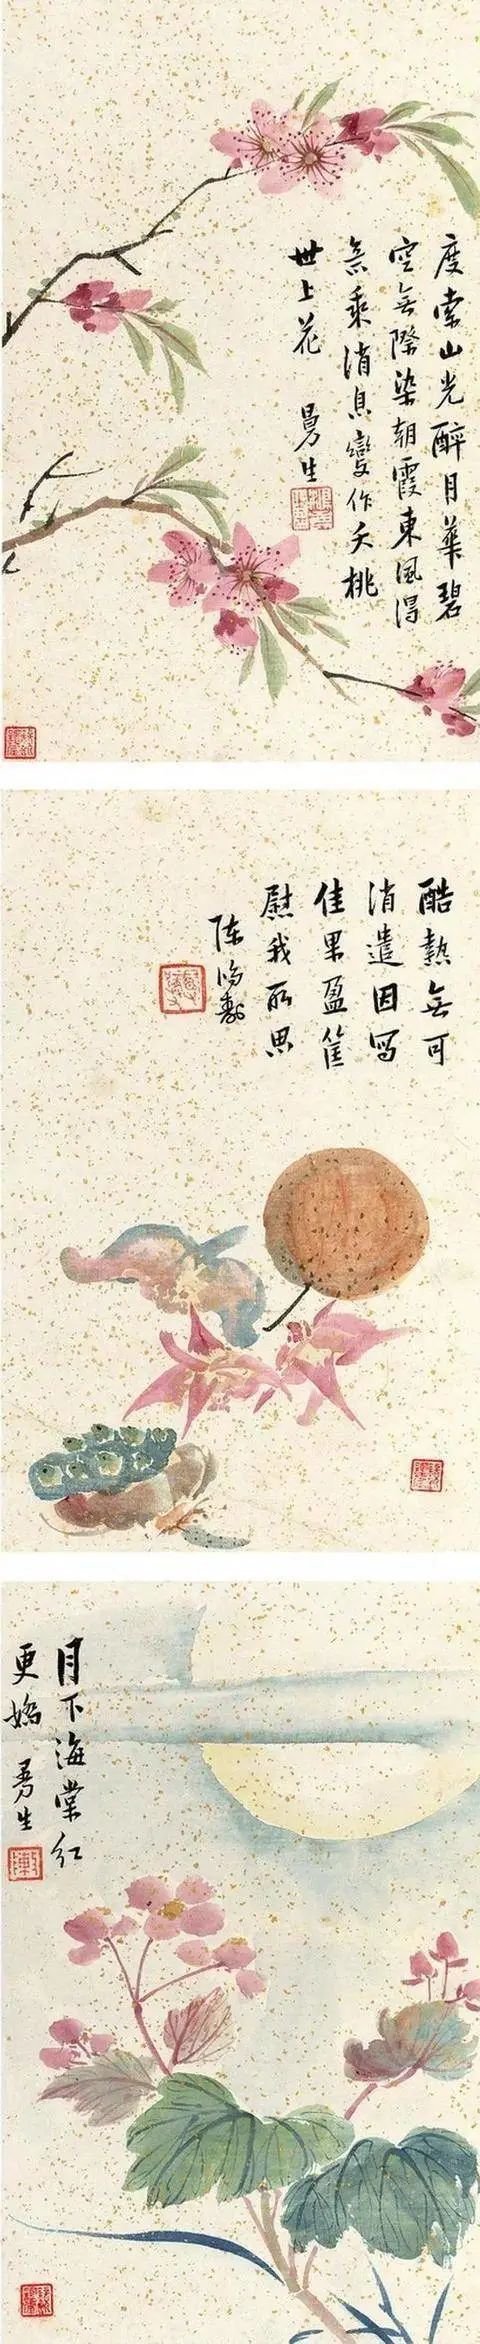 度索山光醉月華碧
空無際染朝霞東風得
氣乘消息變作夭桃
世上花
曼生
酷熱無可
消遣因寫
佳果盈筐
慰我所思
陈鴻壽
月下海棠红
更嬌 曼生